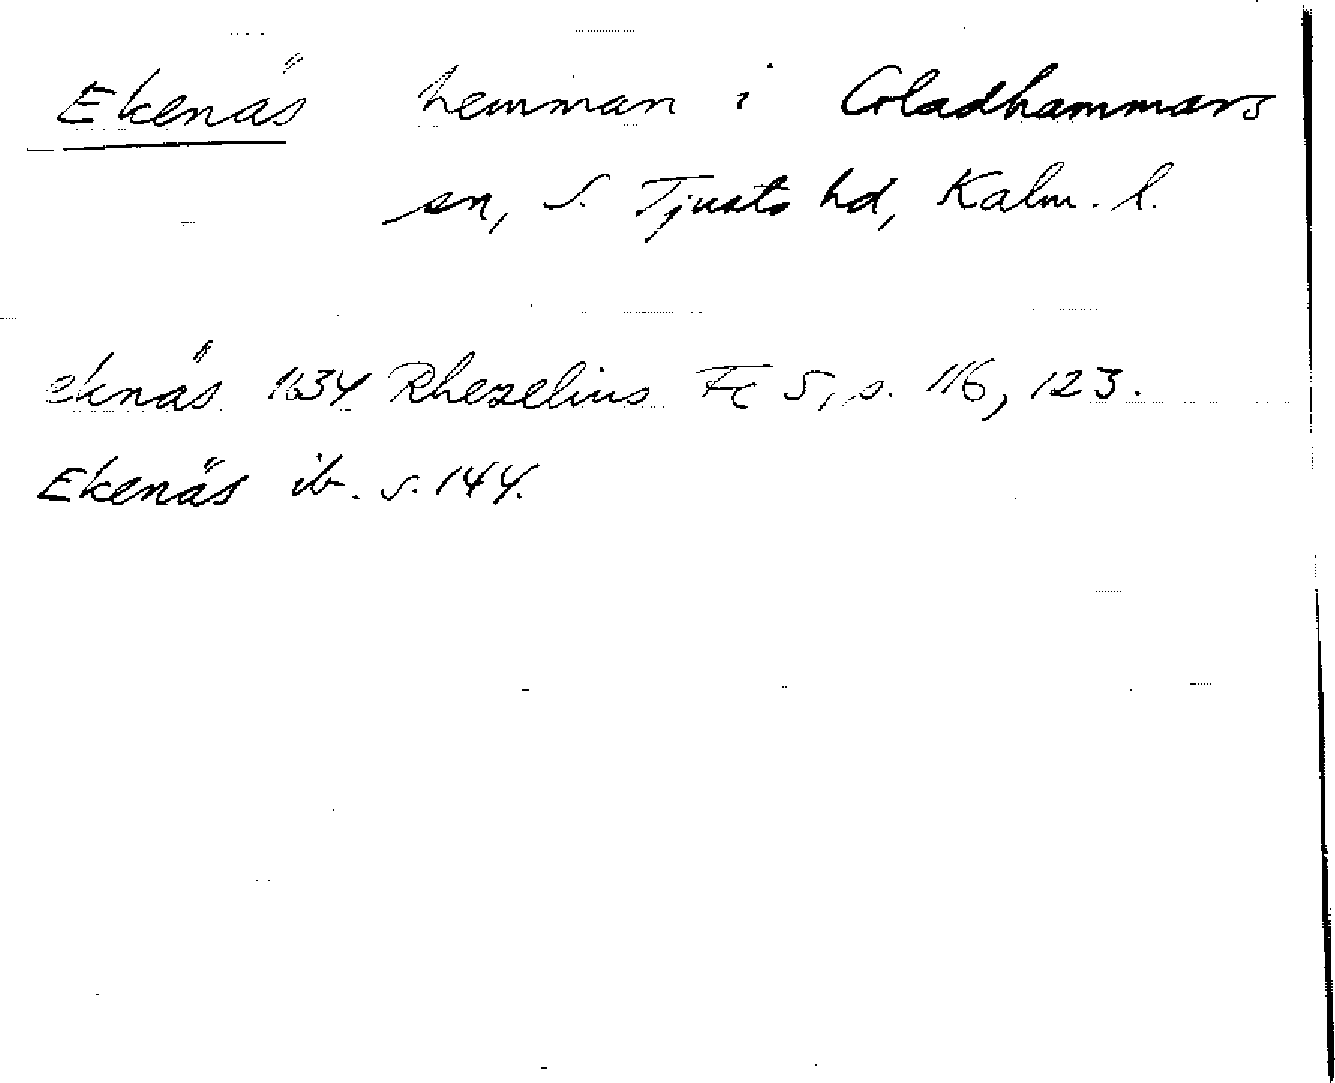 Ekenäs hemman i Gladhammars
sn, S. Tjusts hd, Kalm. l.
eknäs 1634 Rhezelius Fc 5, s. 116, 123.
Ekenäs ib. s. 144.